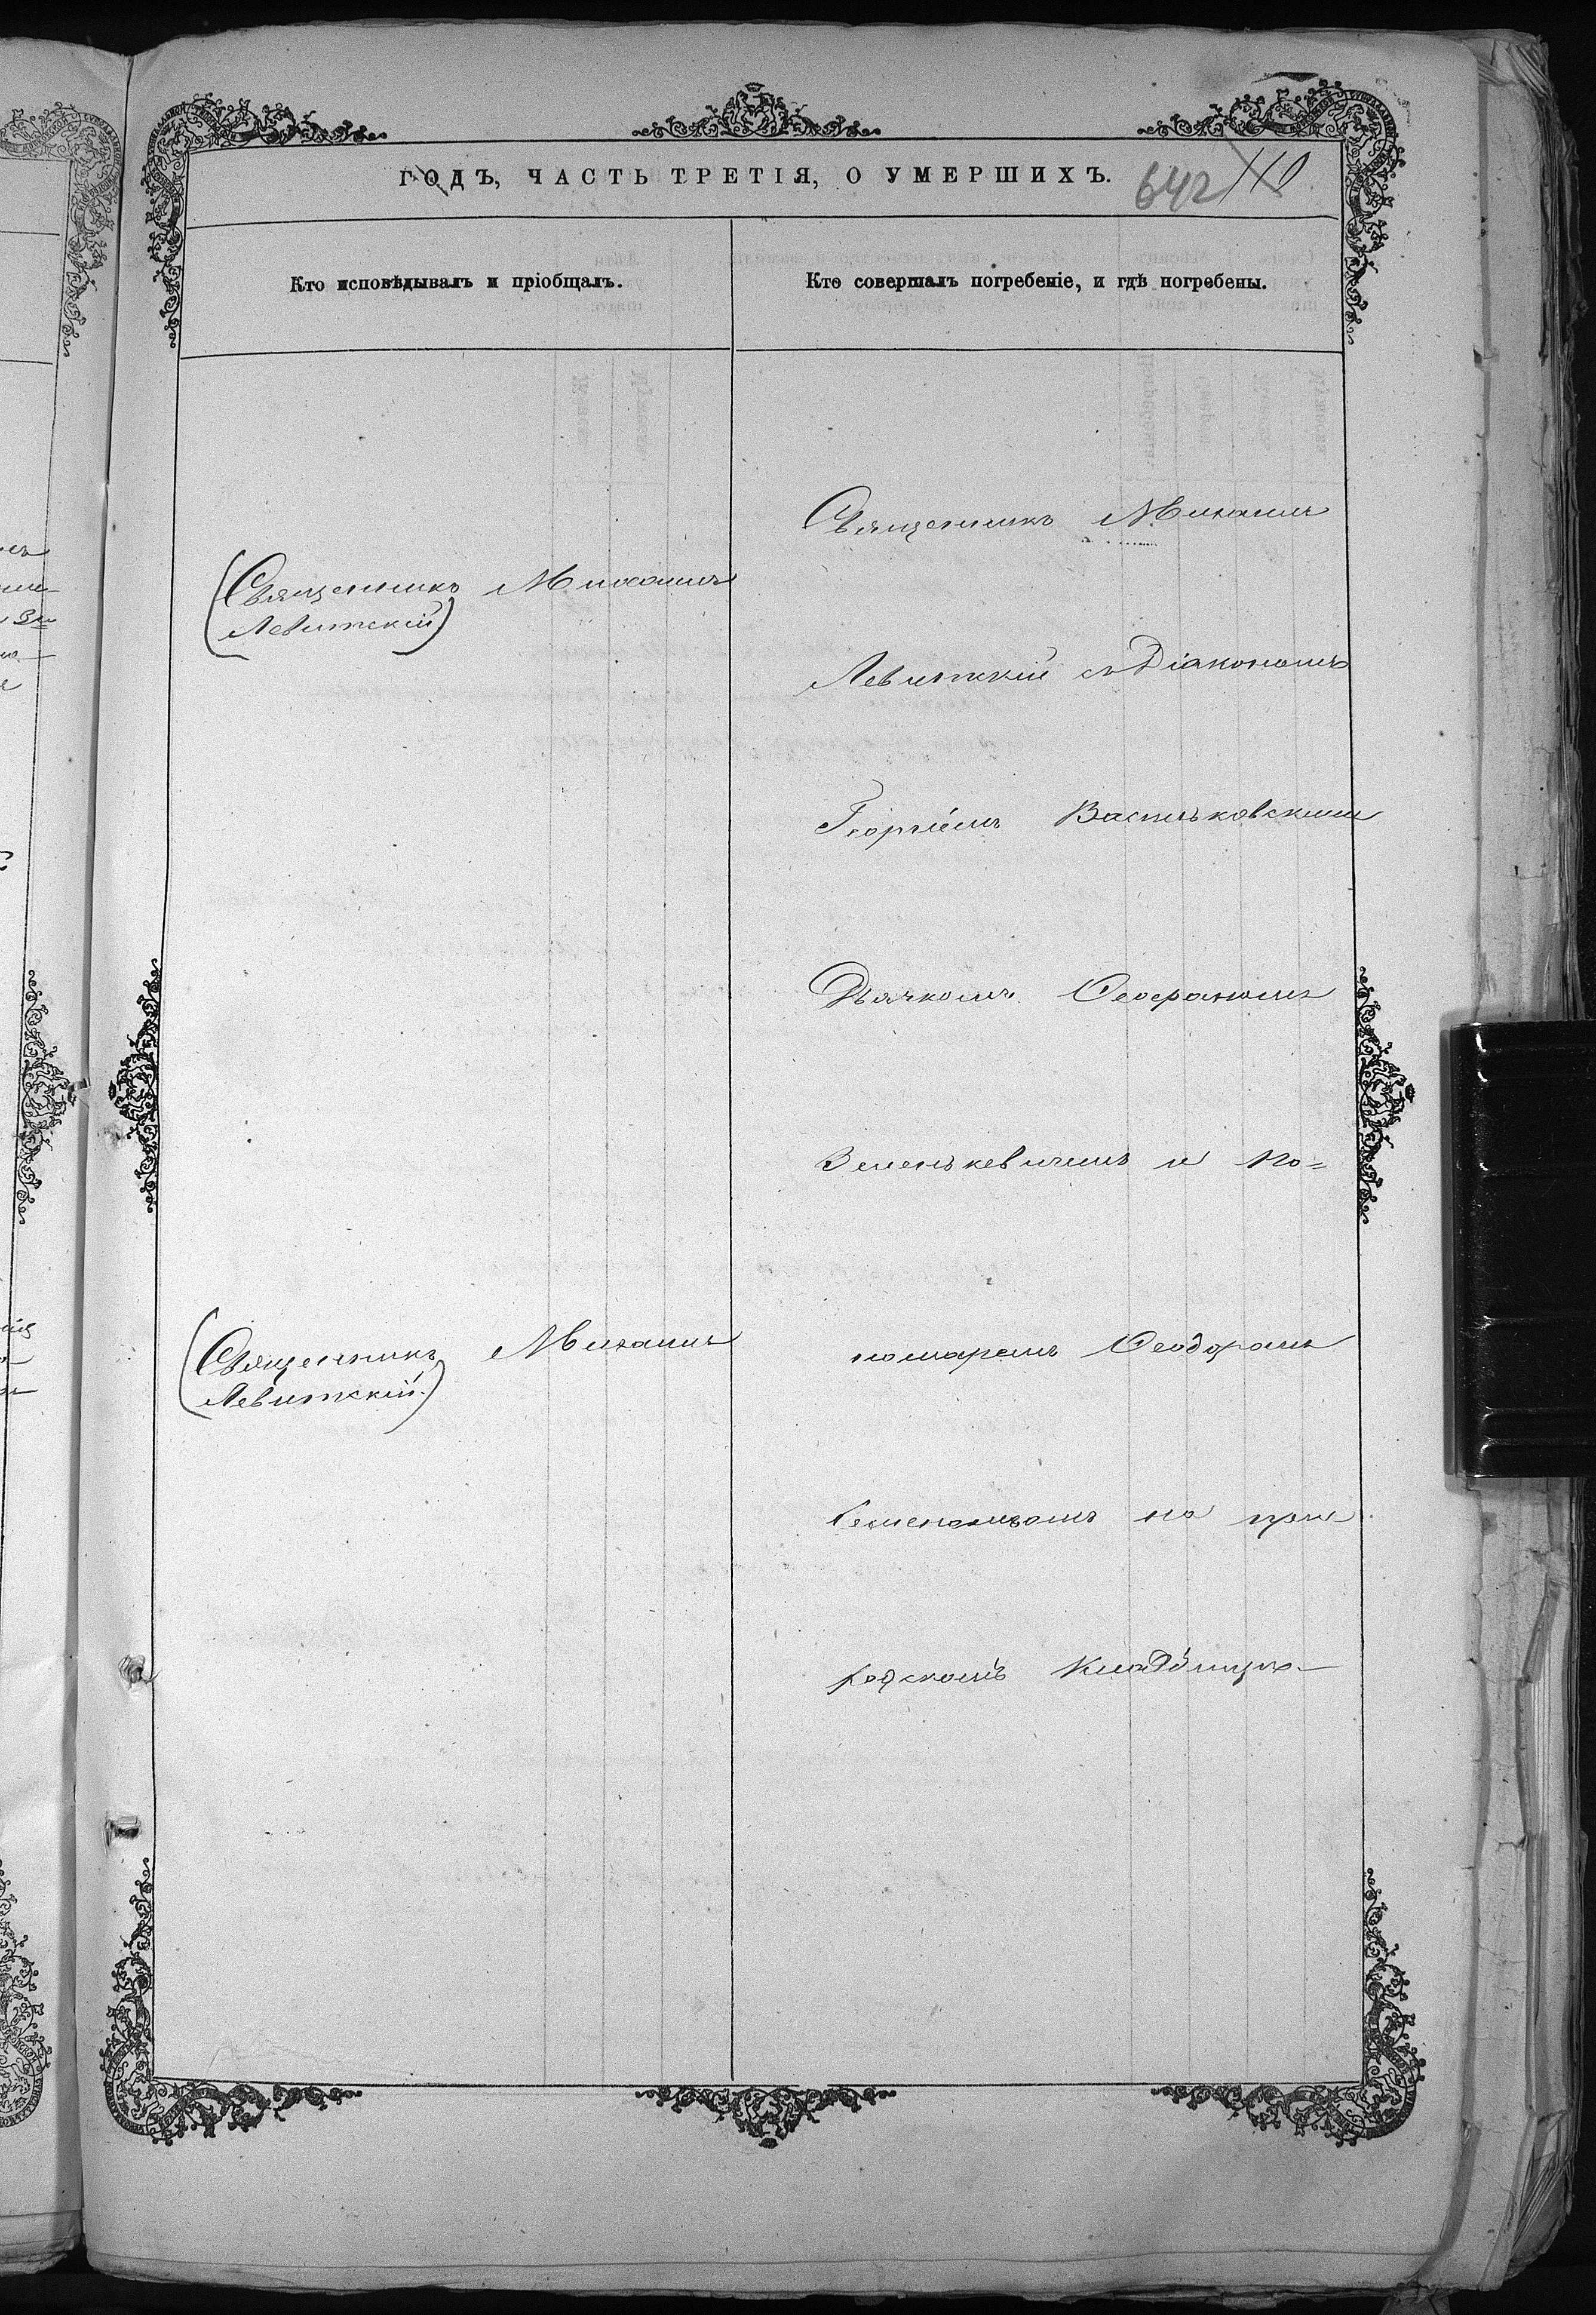 ГОДЪ, ЧАСТЬ ТРЕТІЯ, О УМЕРШИХЪ.
642 110
Кто исповѣдывалъ и пріобщалъ.
Кто совершалъ погребеніе, и гдѣ погребены.
Священникъ Михаилъ
Левитскій
Священникъ Михаилъ
Левитскій.
Священникъ Михаилъ
Левитскій съ Діакономъ
Георгіемъ Васильковскимъ
Дьячкомъ
Зеленькевичемъ и по=
номаремъ Ѳеодоромъ
на при
ходскомъ Кладбищѣ